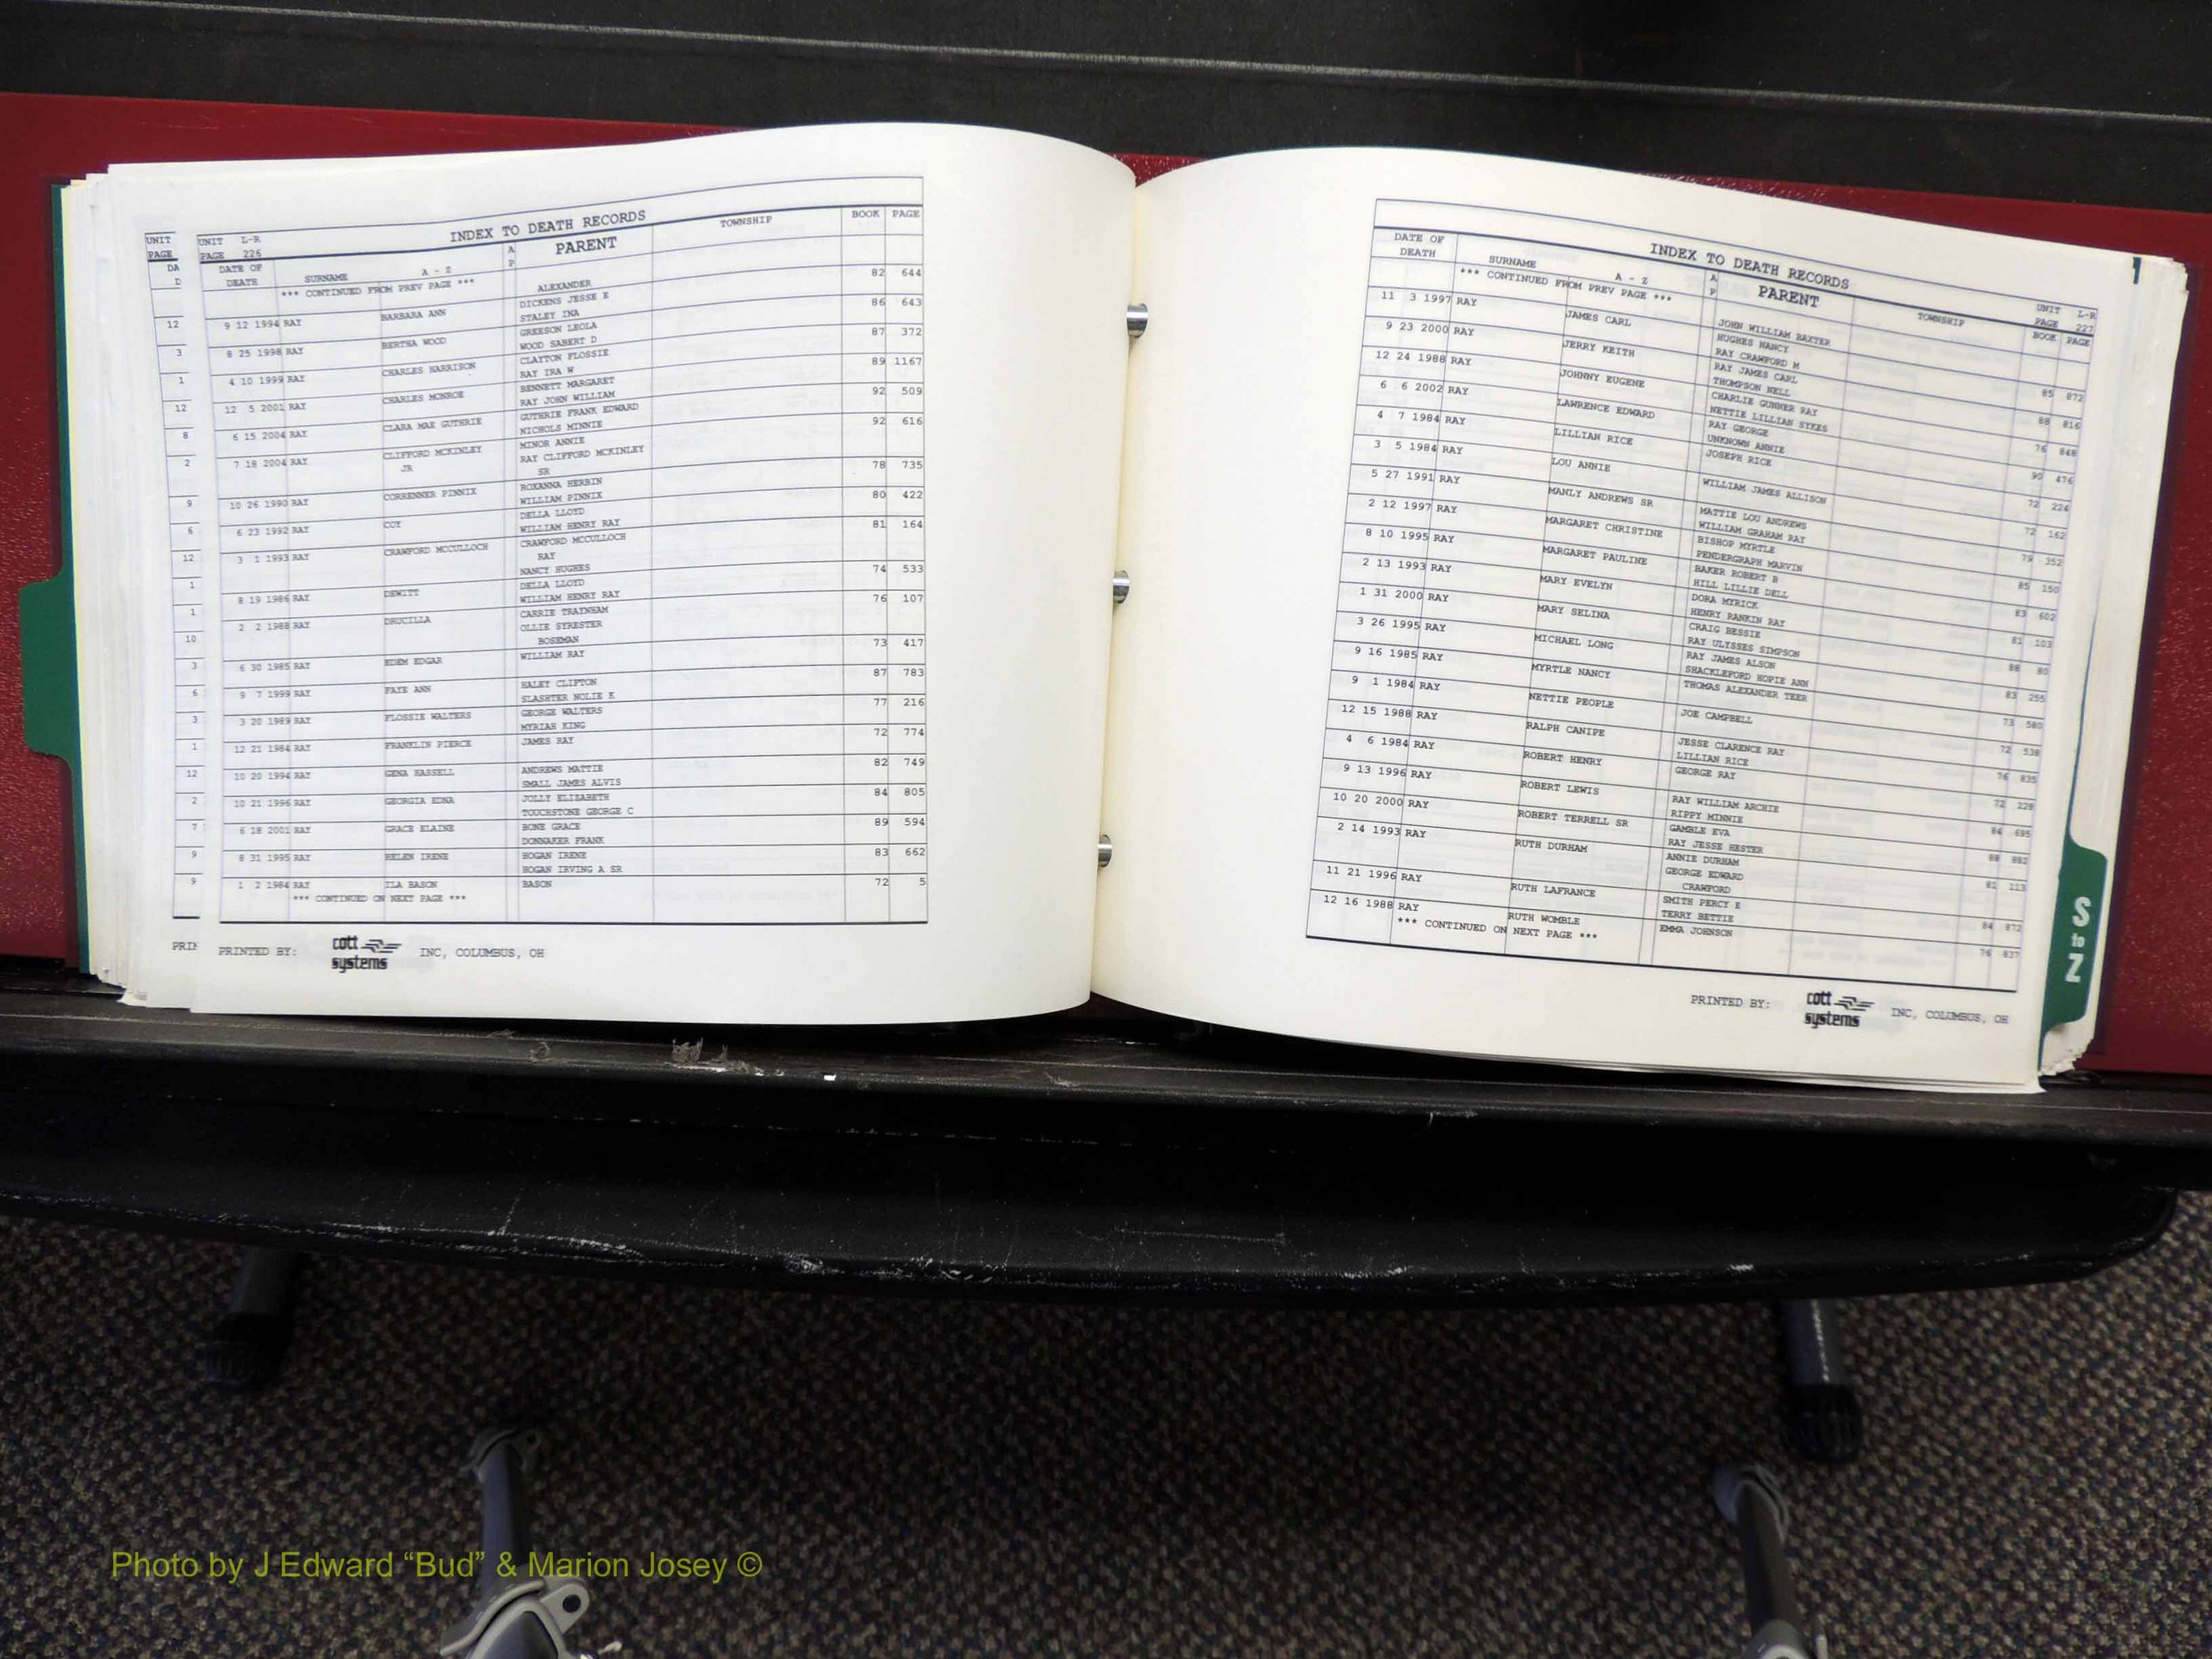 UNIT
PAGE
DA
D
12
3
1
12
8
2
9
6
12
1
1
10
3
6
3
1
12
2
7
9
9
PRIN
UNIT L-R INDEX TO DEATH RECORDS
PAGE 226
DATE OF DEATH SURNAME A - Z A P PARENT TOWNSHIP BOOK PAGE
*** CONTINUED FROM PREV PAGE *** ALEXANDER
9 12 1994 RAY BARBARA ANN DICKENS JESSE E 82 644
STALEY INA
8 25 1998 RAY BERTHA WOOD GREESON LEOLA 86 643
WOOD SABERT D
4 10 1999 RAY CHARLES HARRISON CLAYTON FLOSSIE 87 372
RAY IRA W
12 5 2001 RAY CHARLES MONROE BENNETT MARGARET 89 1167
RAY JOHN WILLIAM
6 15 2004 RAY CLARA MAE GUTHRIE GUTHRIE FRANK EDWARD 92 509
NICHOLS MINNIE
7 18 2004 RAY CLIFFORD MCKINLEY MINOR ANNIE 92 616
JR RAY CLIFFORD MCKINLEY
SR
10 26 1990 RAY CORRENNER PINNIX ROXANNA HERBIN 78 735
WILLIAM PINNIX
6 23 1992 RAY COY DELLA LLOYD 80 422
WILLIAM HENRY RAY
3 1 1993 RAY CRAWFORD MCCULLOCH CRAWFORD MCCULLOCH 81 164
RAY
NANCY HUGHES
8 19 1986 RAY DEWITT DELLA LLOYD 74 533
WILLIAM HENRY RAY
2 2 1988 RAY DRUCILLA CARRIE TRAYNHAM 76 107
OLLIE SYRESTER
BOSEMAN
6 30 1985 RAY EDEM EDGAR WILLIAM RAY 73 417
9 7 1999 RAY FAYE ANN HALEY CLIFTON 87 783
SLASHTER NOLIE K
3 20 1989 RAY FLOSSIE WALTERS GEORGE WALTERS 77 216
MYRIAH KING
12 21 1984 RAY FRANKLIN PIERCE JAMES RAY 72 774
10 20 1994 RAY GENA HASSELL ANDREWS MATTIE 82 749
SMALL JAMES ALVIS
10 21 1996 RAY GEORGIA EDNA JOLLY ELIZABETH 84 805
TOUCHSTONE GEORGE C
6 18 2001 RAY GRACE ELAINE BONE GRACE 89 594
DONNAKER FRANK
8 31 1995 RAY HELEN IRENE HOGAN IRENE 83 662
HOGAN IRVING A SR
1 2 1984 RAY ILA BASON BASON 72 5
*** CONTINUED ON NEXT PAGE ***
PRINTED BY: cott systems INC, COLUMBUS, OH
INDEX TO DEATH RECORDS UNIT L-R
PAGE 227
DATE OF DEATH SURNAME A - Z A P PARENT TOWNSHIP BOOK PAGE
*** CONTINUED FROM PREV PAGE *** JOHN WILLIAM BAXTER
11 3 1997 RAY JAMES CARL HUGHES NANCY 85 872
RAY CRAWFORD M
9 23 2000 RAY JERRY KEITH RAY JAMES CARL 88 816
THOMPSON NELL
12 24 1988 RAY JOHNNY EUGENE CHARLIE GUNNER RAY 76 848
NETTIE LILLIAN SYKES
6 6 2002 RAY LAWRENCE EDWARD RAY GEORGE 90 476
UNKNOWN ANNIE
4 7 1984 RAY LILLIAN RICE JOSEPH RICE 72 224
3 5 1984 RAY LOU ANNIE WILLIAM JAMES ALLISON 72 162
5 27 1991 RAY MANLY ANDREWS SR MATTIE LOU ANDREWS 79 352
WILLIAM GRAHAM RAY
2 12 1997 RAY MARGARET CHRISTINE BISHOP MYRTLE 85 150
PENDERGRAPH MARVIN
8 10 1995 RAY MARGARET PAULINE BAKER ROBERT B 83 602
HILL LILLIE DELL
2 13 1993 RAY MARY EVELYN DORA MYRICK 81 103
HENRY RANKIN RAY
1 31 2000 RAY MARY SELINA CRAIG BESSIE 88 80
RAY ULYSSES SIMPSON
3 26 1995 RAY MICHAEL LONG RAY JAMES ALSON 83 255
SHACKLEFORD HOPIE ANN
9 16 1985 RAY MYRTLE NANCY THOMAS ALEXANDER TEER 73 580
9 1 1984 RAY NETTIE PEOPLE JOE CAMPBELL 72 538
12 15 1988 RAY RALPH CANIPE JESSE CLARENCE RAY 76 835
LILLIAN RICE
4 6 1984 RAY ROBERT HENRY GEORGE RAY 72 228
9 13 1996 RAY ROBERT LEWIS RAY WILLIAM ARCHIE 84 695
RIPPY MINNIE
10 20 2000 RAY ROBERT TERRELL SR GAMBLE EVA 88 882
RAY JESSE HESTER
2 14 1993 RAY RUTH DURHAM ANNIE DURHAM 81 113
GEORGE EDWARD
CRAWFORD
11 21 1996 RAY RUTH LAFRANCE SMITH PERCY E 84 872
TERRY BETTIE
12 16 1988 RAY RUTH WOMBLE EMMA JOHNSON 76 837
*** CONTINUED ON NEXT PAGE ***
PRINTED BY: cott systems INC, COLUMBUS, OH
S to Z
Photo by J Edward “Bud” & Marion Josey ©